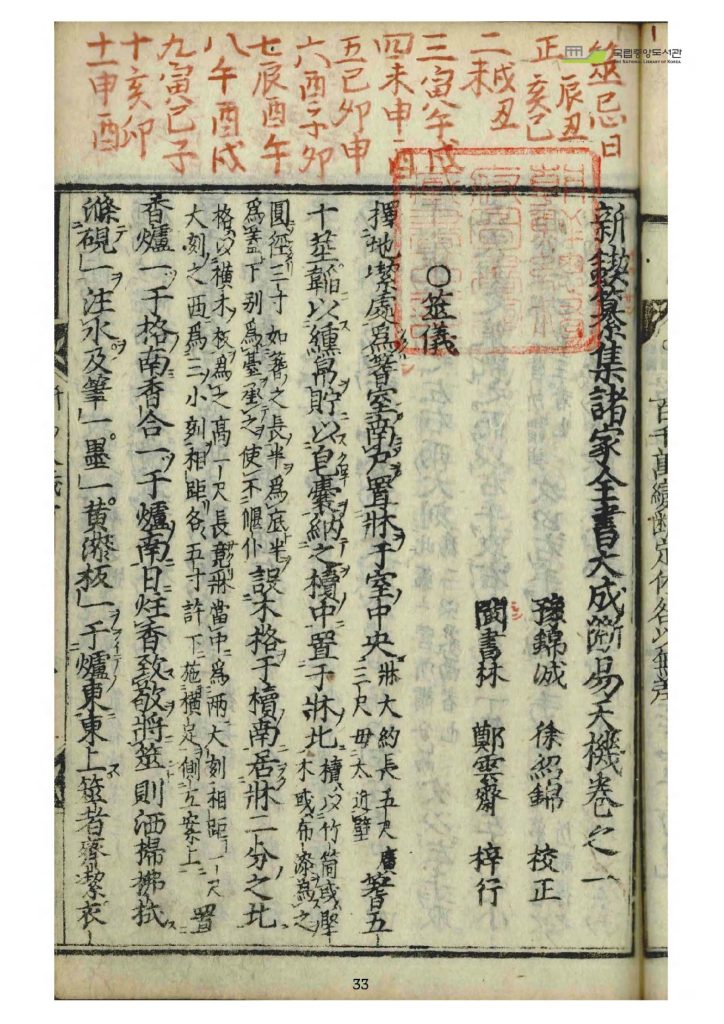 국립중앙도서관
THE NATIONAL LIBRARY OF KOREA
筮忌日
正 辰丑 亥巳
二 戌丑 未
三寅八午戌
四未申酉
五巳卯申
六酉子卯
七辰酉午
八午酉戌
九寅巳子
十亥卯
十一申酉
新鋟纂集諸家全書大成斷易天機卷之一
豫錦誠 徐紹錦 校正
閩書林 鄭雲齋 梓行
○筮儀
擇地㓗處爲蓍室南戶置牀于室中央 牀大約長五尺廣三尺毋太近壁 蓍五
十莖韜以纁帛貯以皂囊納之櫝中置于牀北 櫝以竹筒或堅木或布漆為之
圓徑三寸如蓍之長半爲底半爲蓋下别爲臺函之使不偃仆 設木格于櫝南居牀二分之北
格以横木板爲之高一尺長竟牀當中爲兩大刻相距一尺大刻之西爲三小刻相距各五寸許下施横足側立案上 置
香爐一于格南香合一于爐南日炷香致敬將筮則洒掃拂拭
滌硯一注水及筆一墨一黄漆板一于爐東東上筮者齊潔衣
百千萬續斷定休咎以無差
33